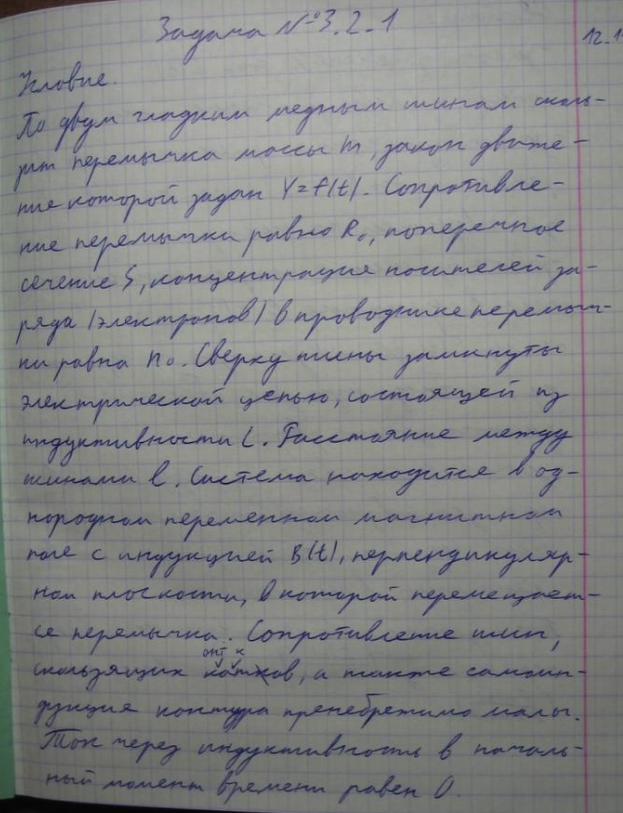 Задача №3.2-1
12.1
Условие.
По двум гладким медным шинам сколь-
зит перемычка массы m, закон движе-
ние которой задан Y=f(t). Сопротивле-
ние перемычки равно R₀, поперечное
сечение S, концентрация носителей за-
ряда (электронов) в проводнике перемыч-
ки равна n₀. Сверху шины замкнуты
электрической цепью, состоящей из
индуктивности L. Расстояние между
шинами l. Система находится в од-
нородном переменном магнитном
поле с индукцией B(t), перпендикуляр-
ном плоскости, в которой перемещает-
ся перемычка. Сопротивление шин,
скользящих контактов, а также самоин-
дукция контура пренебрежимо малы.
Ток через индуктивность в началь-
ный момент времени равен 0.